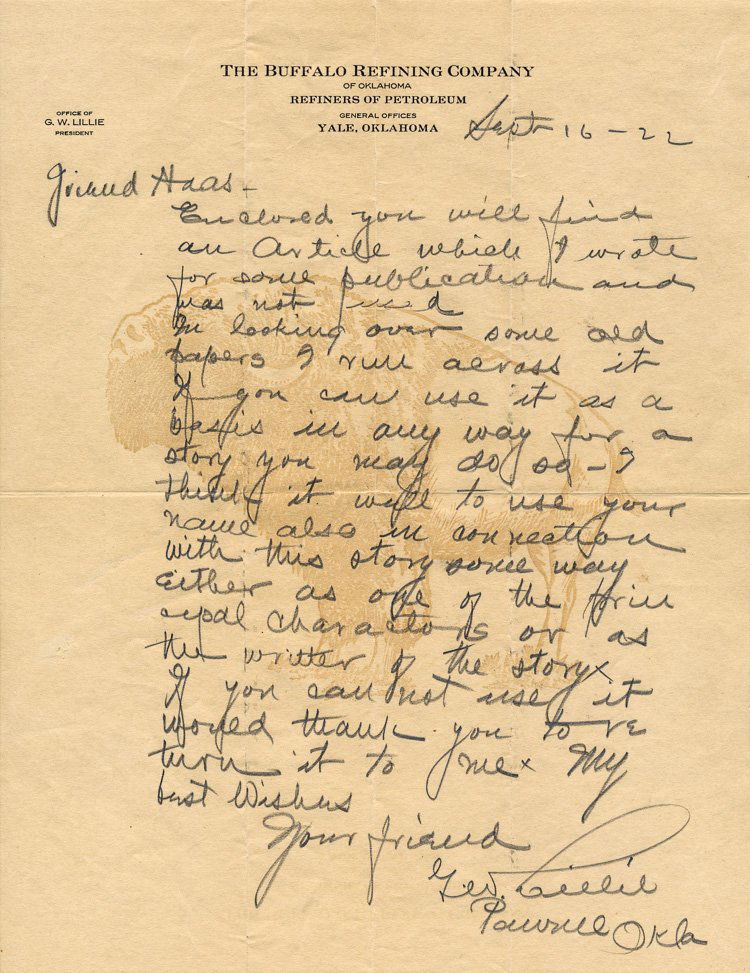 THE BUFFALO REFINING COMPANY
OF OKLAHOMA
REFINERS OF PETROLEUM
GENERAL OFFICES
YALE, OKLAHOMA
OFFICE OF
G. W. LILLIE
PRESIDENT
Sept 16 - 22
Friend Haas -
Enclosed you will find
an Article which I wrote
for some publication and
was not used
In looking over some old
papers I run across it
If you can use it as a
basis in any way for a
story you may do so - I
think it well to use your
name also in connection
with this story some way
Either as one of the prin
cipal charactors or as
the writter of the story x
If you can not use it
would thank you to re
turn it to me x My
best Wishes
Your friend
G.W. Lillie
Pawnee Okla